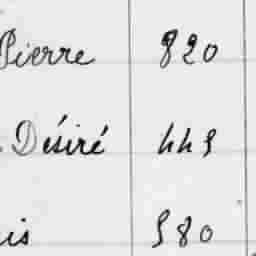 Pierre 820
Désiré 445
is 580